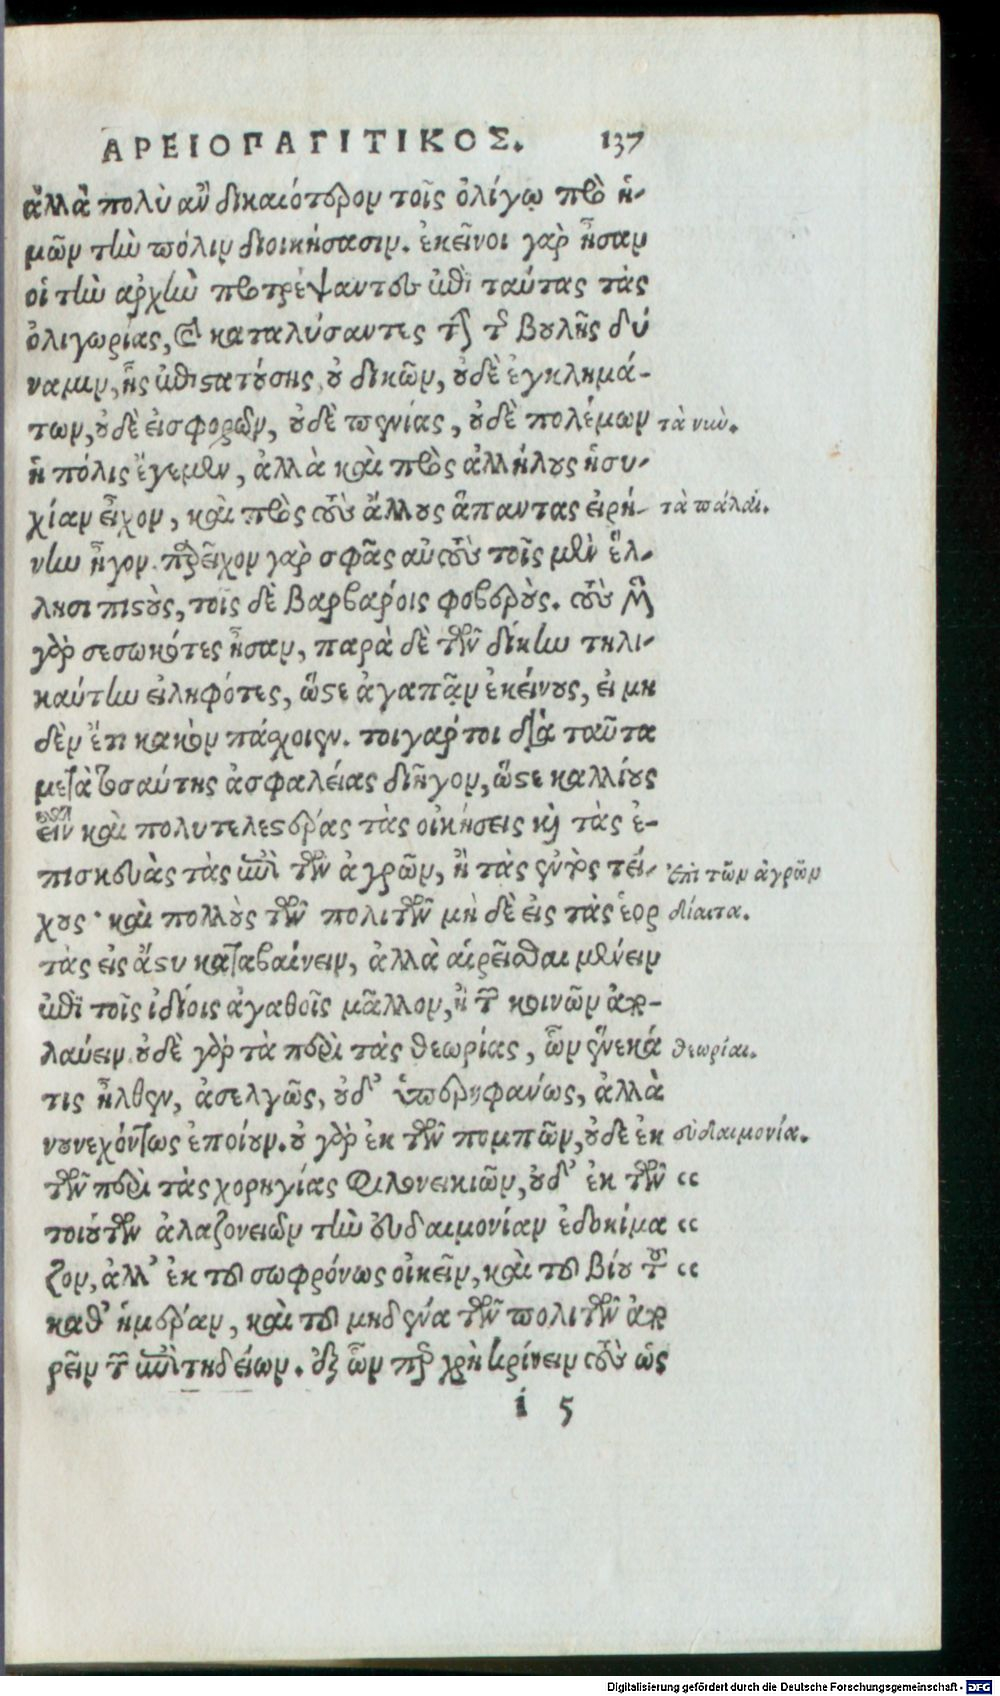 ΑΡΕΙΟΠΑΓΙΤΙΚΟΣ. 137
ἀλλὰ πολὺ ἂν δικαιότερον τοῖς ὀλίγῳ πρὸ ἡ-
μῶν τὴν πόλιν διοικήσασιν. ἐκεῖνοι γὰρ ἦσαν
οἱ τὴν ἀρχὴν προτρέψαντες ἐπὶ ταύτας τὰς
ὀλιγωρίας, καὶ καταλύσαντες τὴν τῆς βουλῆς δύ
ναμιν, ἧς ἐπιστατούσης, οὐ δικῶν, οὐδὲ ἐγκλημά-
των, οὐδὲ εἰσφορῶν, οὐδὲ πενίας, οὐδὲ πολέμων
τὰ νῦν.
ἡ πόλις ἔγεμεν, ἀλλὰ καὶ πρὸς ἀλλήλους ἡσυ-
χίαν εἶχον, καὶ πρὸς τοὺς ἄλλους ἅπαντας εἰρή-
τὰ πάλαι.
νην ἦγον. παρεῖχον γὰρ σφᾶς αὐτοὺς τοῖς μὲν ἕλ-
λησι πιστοὺς, τοῖς δὲ βαρβάροις φοβερούς. τοὺς μὲν
γὰρ σεσωκότες ἦσαν, παρὰ δὲ τῶν δίκην τηλι-
καύτην εἰληφότες, ὥστε ἀγαπᾷν ἐκείνους, εἰ μη
δὲν ἔτι κακὸν πάσχοιεν. τοιγάρτοι διὰ ταῦτα
μετὰ τοσαύτης ἀσφαλείας διῆγον, ὥστε καλλίους
εἶναι καὶ πολυτελεστέρας τὰς οἰκήσεις καὶ τὰς ἐ-
πισκευὰς τὰς ἐπὶ τῶν ἀγρῶν, ἢ τὰς ἐντὸς τεί-
ἐπὶ τῶν ἀγρῶν
χους· καὶ πολλοὺς τῶν πολιτῶν μὴ δὲ εἰς τὰς ἑορ
δίαιτα.
τὰς εἰς ἄστυ καταβαίνειν, ἀλλὰ αἱρεῖσθαι μένειν
ἐπὶ τοῖς ἰδίοις ἀγαθοῖς μᾶλλον, ἢ τῶν κοινῶν ἀπο-
λαύειν. οὐδὲ γὰρ τὰ περὶ τὰς θεωρίας, ὧν ἕνεκά
θεωρίαι.
τις ἦλθεν, ἀσελγῶς, οὐδ' ὑπερηφανίως, ἀλλὰ
νουνεχόντως ἐποίουν. οὐ γὰρ ἐκ τῶν πομπῶν, οὐδὲ ἐκ
εὐδαιμονία.
τῶν περὶ τὰς χορηγίας φιλονεικιῶν, οὐδ' ἐκ τῶν “
τοιούτων ἀλαζονειῶν τὴν εὐδαιμονίαν ἐδοκίμα “
ζον, ἀλλ' ἐκ τοῦ σωφρόνως οἰκεῖν, καὶ τοῦ βίου τοῦ “
καθ' ἡμέραν, καὶ τοῦ μηδένα τῶν πολιτῶν ἀπο
ρεῖν τῶν ἐπιτηδείων. ἐξ ὧν περ χρὴ κρίνειν τοὺς ὡς
i 5
Digitalisierung gefördert durch die Deutsche Forschungsgemeinschaft - DFG